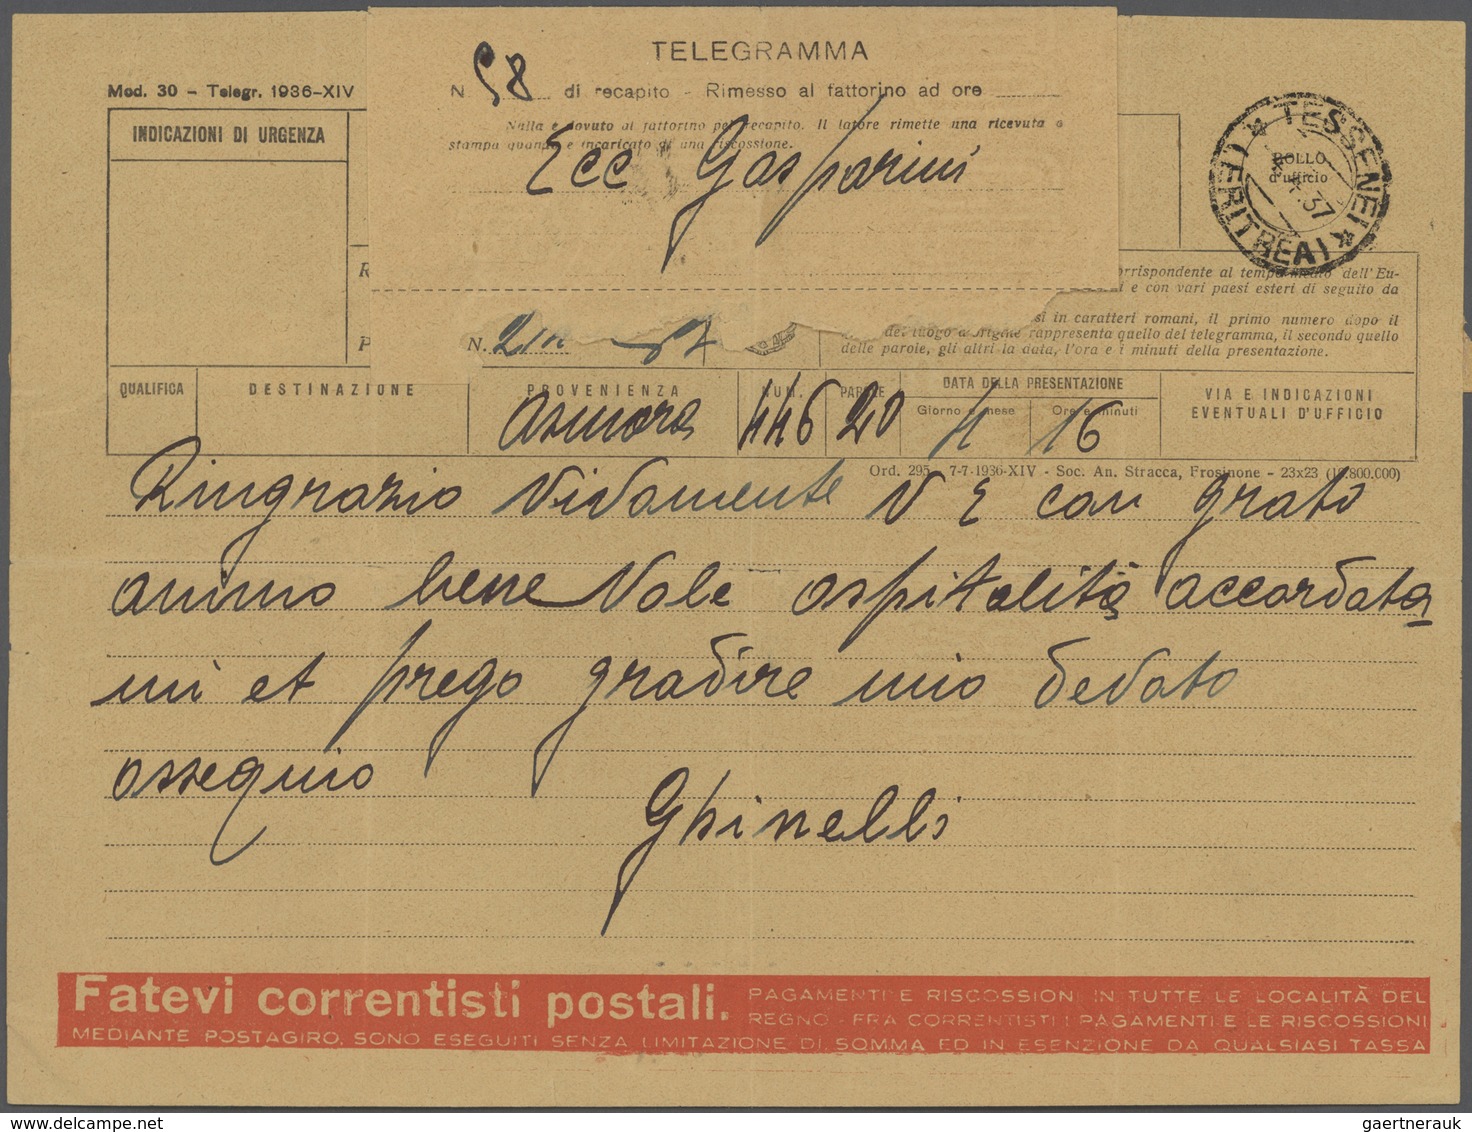 TELEGRAMMA
Mod. 30 - Telegr. 1936-XIV
N. 58 di recapito - Rimesso al fattorino ad ore
Nulla è dovuto al fattorino pel recapito. Il latore rimette una ricevuta a
stampa quando è incaricato di una riscossione.
Ecc Gasparini
INDICAZIONI DI URGENZA
* TESSENEI * (ERITREA)
BOLLO
d'ufficio
37
R
P
orrispondente al tempo medio dell'Eu-
i e con vari paesi esteri di seguito da
si in caratteri romani, il primo numero dopo il
del luogo d'origine rappresenta quello del telegramma, il secondo quello
delle parole, gli altri la data, l'ora e i minuti della presentazione.
N.
QUALIFICA
DESTINAZIONE
PROVENIENZA
NUM.
PAROLE
DATA DELLA PRESENTAZIONE
Giorno e mese
Ore e minuti
VIA E INDICAZIONI
EVENTUALI D'UFFICIO
Asmara 446 20 4 16
Ord. 295 - 7-7-1936-XIV - Soc. An. Stracca, Frosinone - 23x23 (10.800.000)
Ringrazio vivamente V E con grato
animo benevole ospitalità accordata
mi et prego gradire mio devoto
ossequio
Ghinelli
Fatevi correntisti postali.
PAGAMENTI E RISCOSSIONI IN TUTTE LE LOCALITÀ DEL
REGNO - FRA CORRENTISTI I PAGAMENTI E LE RISCOSSIONI
MEDIANTE POSTAGIRO, SONO ESEGUITI SENZA LIMITAZIONE DI SOMMA ED IN ESENZIONE DA QUALSIASI TASSA
gaertnerauk@delcampe.net